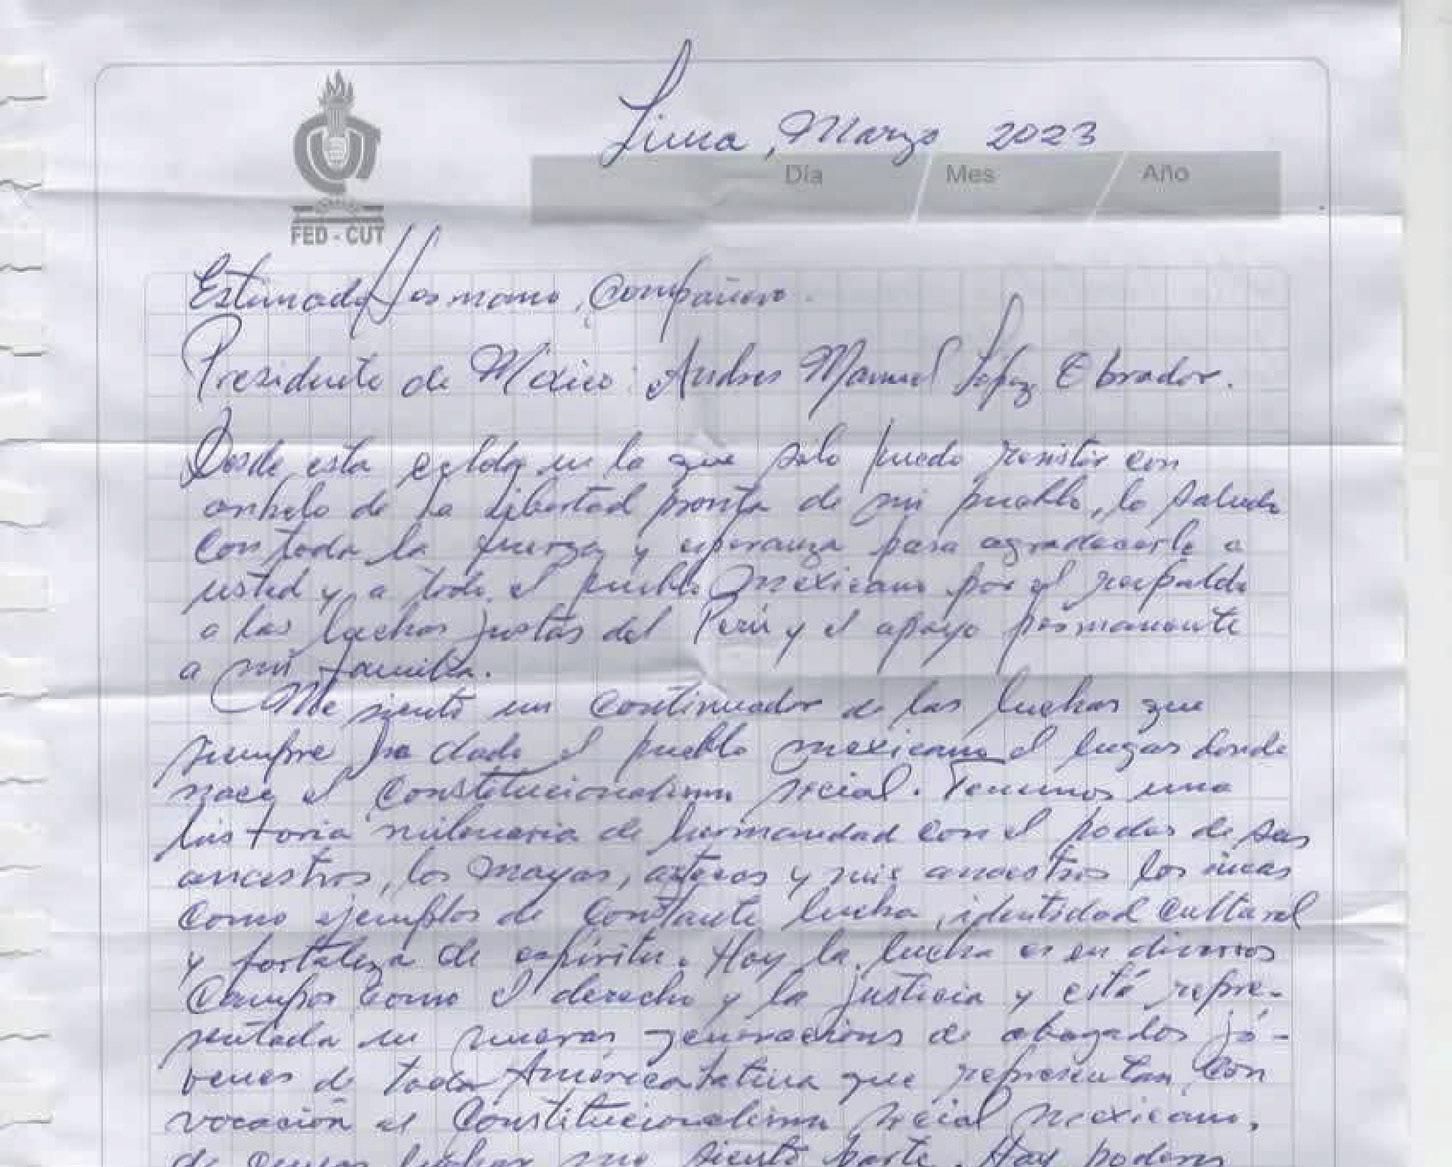 Lima, Marzo 2023
Día Mes Año
FED - CUT
Estimado Hermano, Compañero.
Presidente de México: Andres Manuel López Obrador.
Desde esta celda en la que solo puedo resistir con
anhelo de la libertad pronta de mi pueblo, lo saludo
con toda la fuerza y esperanza para agradecerle a
usted y a todo el pueblo mexicano por el respaldo
a las luchas justas del Perú y el apoyo permanente
a mi familia.
Me siento un continuador de las luchas que
siempre ha dado el pueblo mexicano el lugar donde
nace el Constitucionalismo social. Tenemos una
historia milenaria de hermandad con el poder de sus
ancestros, los mayas, aztecas y mis ancestros los incas
como ejemplos de constante lucha, identidad cultural
y fortaleza de espíritu. Hoy la lucha es en diversos
Campos como el derecho y la justicia y está repre-
sentada en nuevas generaciones de abogados jó-
venes de toda América Latina que representan con
vocación el Constitucionalismo social mexicano,
de cuyas luchas me siento parte. Hay poderes